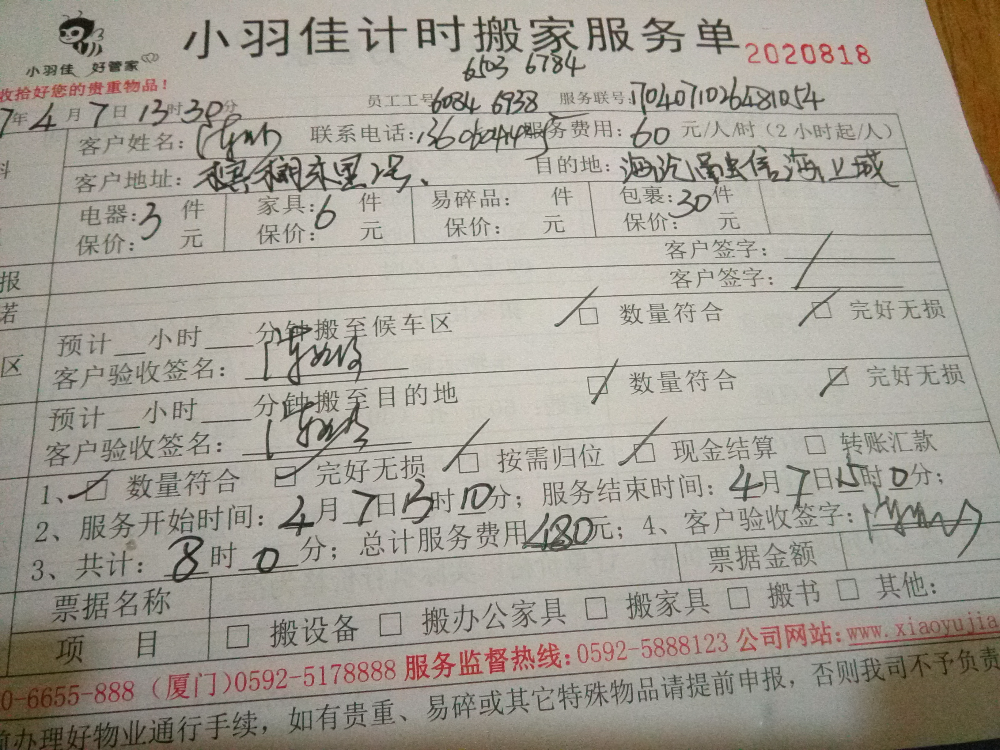 小羽佳计时搬家服务单
小羽佳 好管家
2020818
收拾好您的贵重物品!
6503 6784
7年4月7日13时30分
员工工号6084 6938 服务联号:1704071026481054
客户姓名: 联系电话: 服务费用:60元/人/时(2小时起/人)
客户地址: 东里2号、 目的地:海沧 信海上城
电器:3件 家具:6件 易碎品: 件 包裹:30件
保价: 元 保价: 元 保价: 元 保价: 元
客户签字:
报 客户签字:
诺
预计__小时____分钟搬至候车区 □ 数量符合 □ 完好无损
区 客户验收签名:
预计__小时____分钟搬至目的地 □ 数量符合 □ 完好无损
客户验收签名:
1、□ 数量符合 □ 完好无损 □ 按需归位 □ 现金结算 □ 转账汇款
2、服务开始时间:4月7日13时10分;服务结束时间:4月7日15时0分;
3、共计:8时0分;总计服务费用480元;4、客户验收签字:
票据名称 票据金额
项 目 □ 搬设备 □ 搬办公家具 □ 搬家具 □ 搬书 □ 其他:
0-6655-888 (厦门)0592-5178888 服务监督热线:0592-5888123 公司网站:www.xiaoyujia
前办理好物业通行手续,如有贵重、易碎或其它特殊物品请提前申报,否则我司不予负责